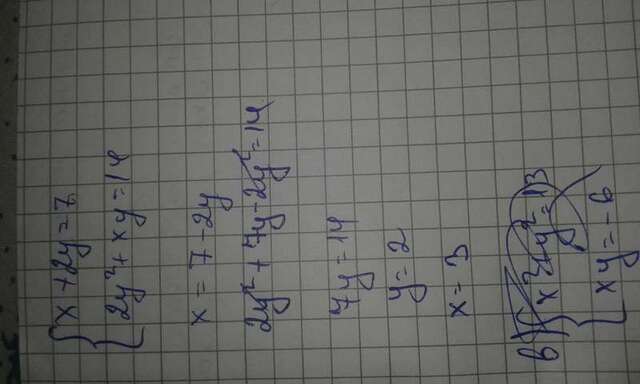 { x + 2y = 7
2y² + xy = 14
x = 7 - 2y
2y² + 7y - 2y² = 14
7y = 14
y = 2
x = 3
б) { x² + y² = 13
xy = -6